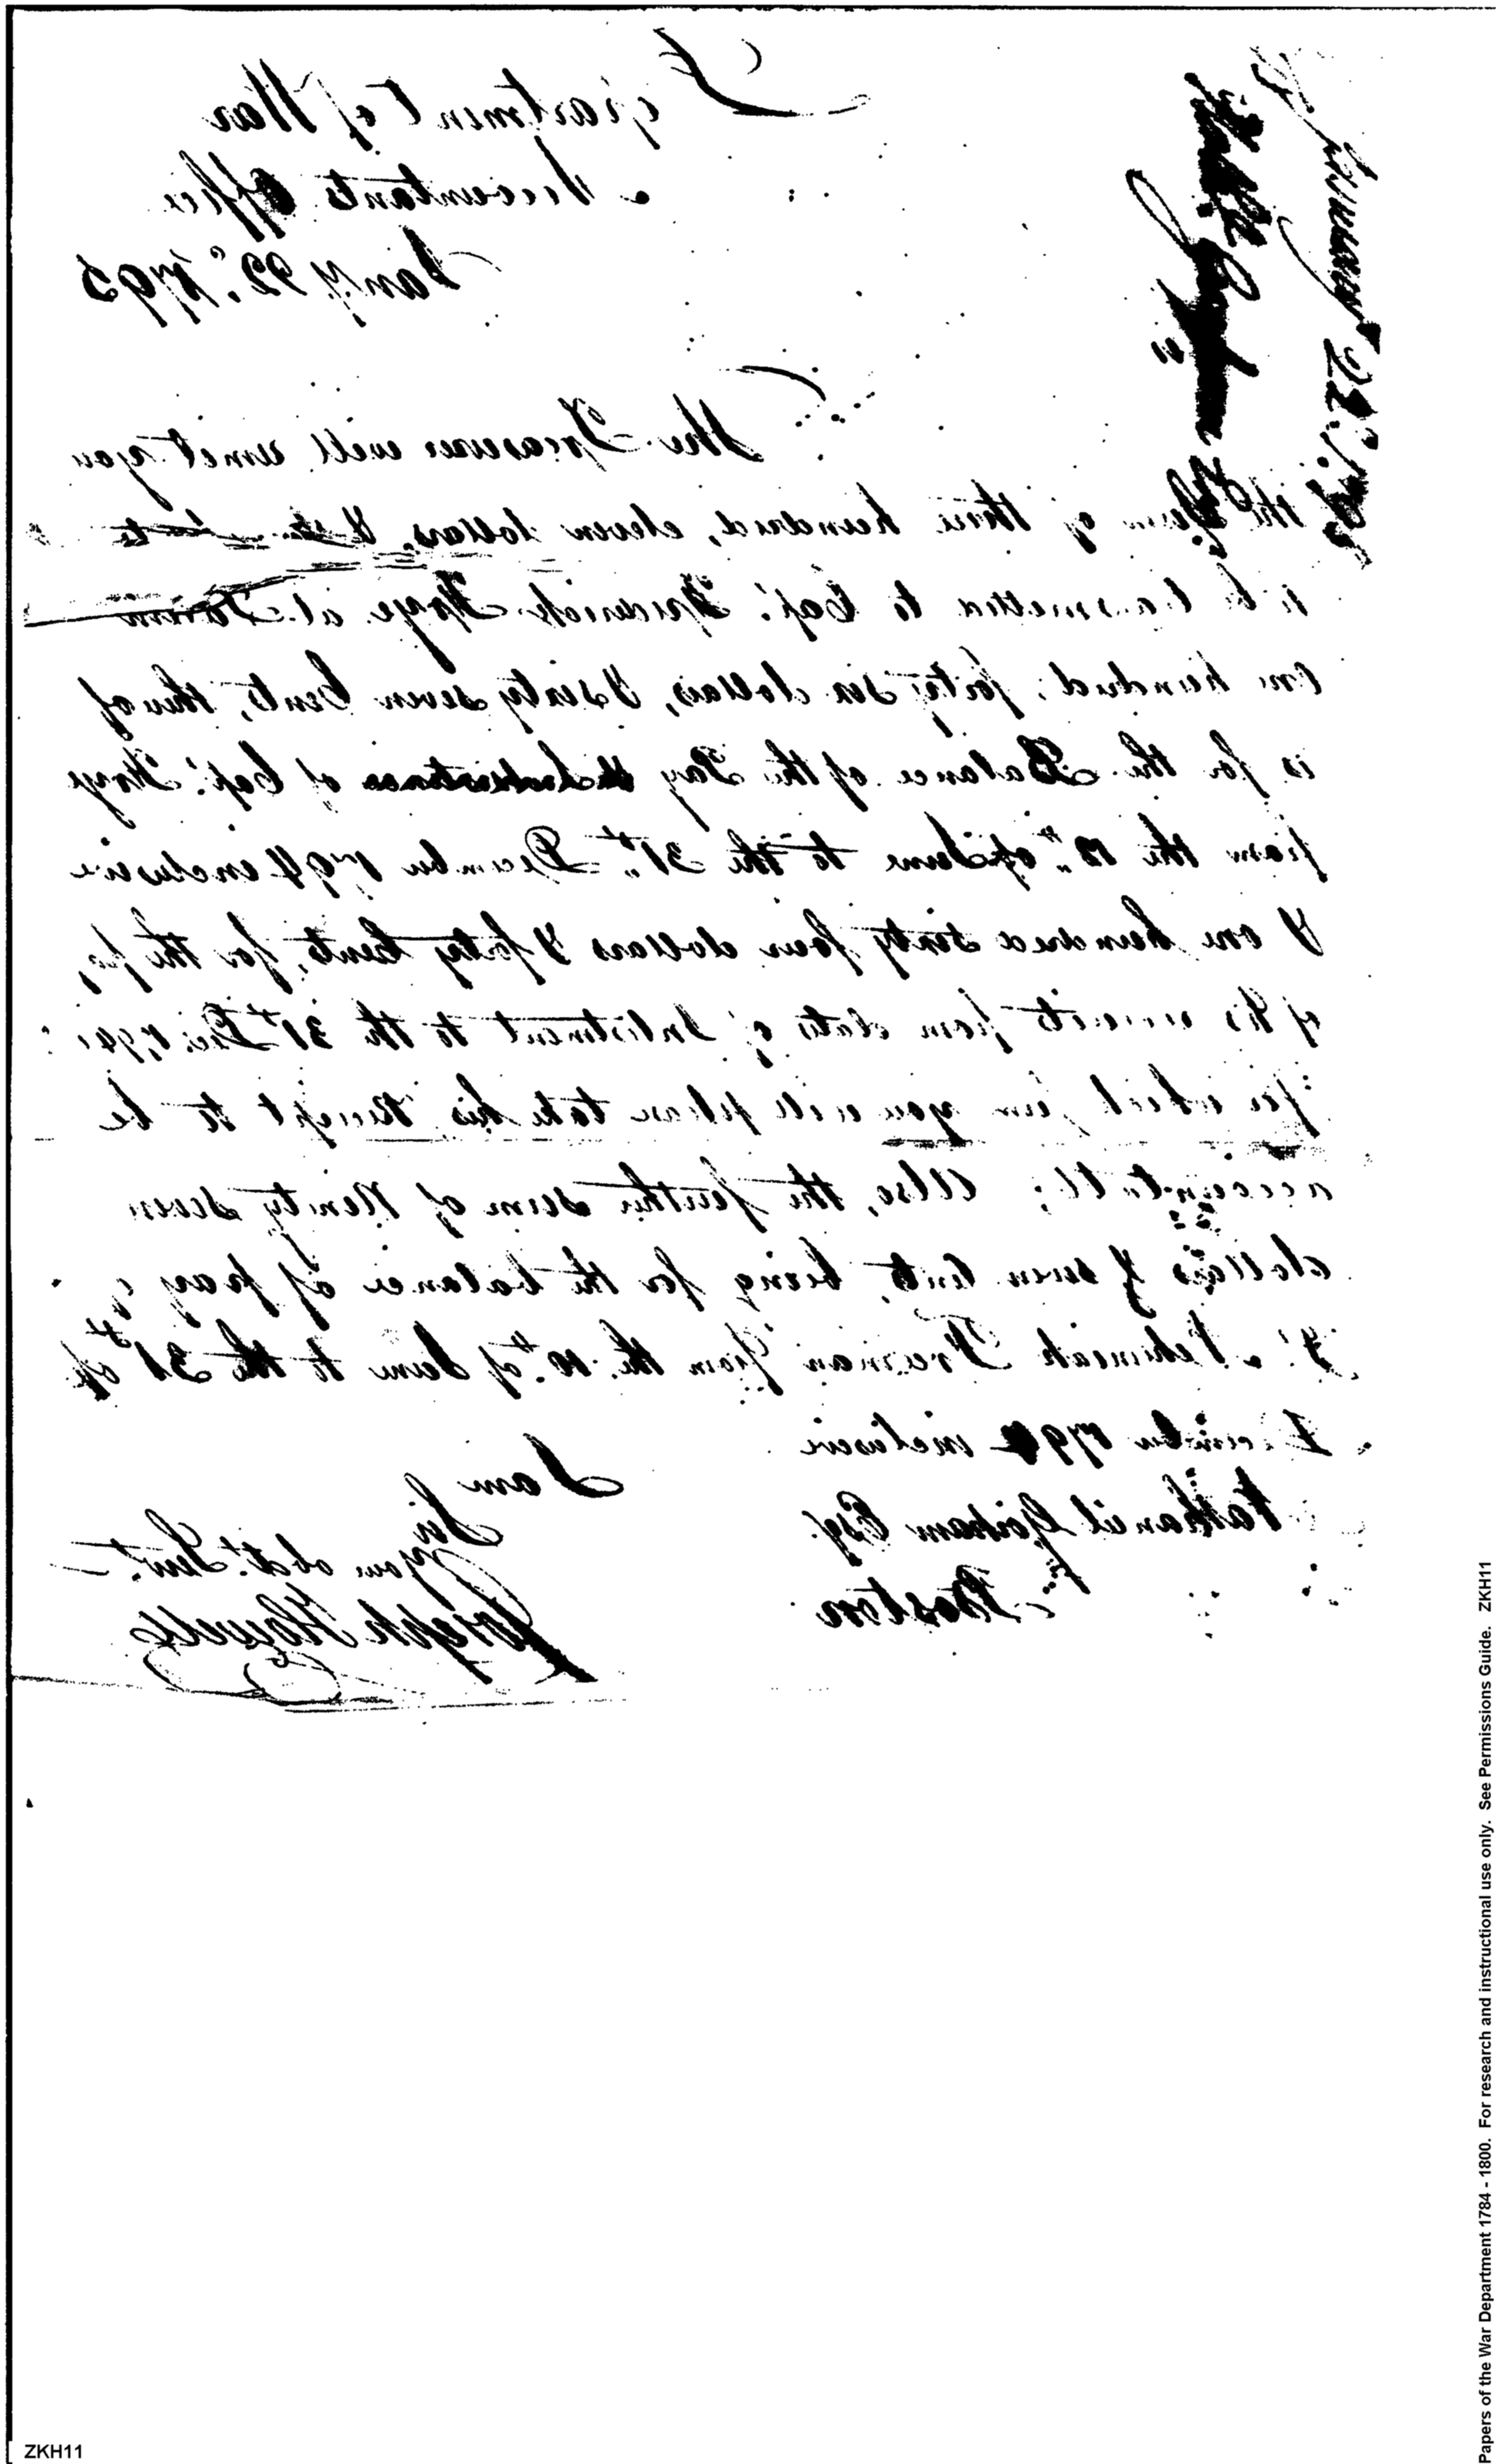 Department of War
Accountants Office
Jan'y 22d. 1795
The Treasurer will remit you
the Sum of three hundred, eleven dollars, &
to be transmitted to Capt. Frederick Frye at
one hundred, forty six dollars, & sixty seven Cents, thereof
is for the Balance of the Pay & Subsistence of Capt. Frye
from the 12th. of June to the 31st. December 1794 inclusive
& one hundred sixty four dollars & forty Cents, for the pay
of his recruits from dates of Inlistment to the 31st Decr. 1794
for which sum you will please take his Receipt to be
accountable; Also, the further sum of Ninety seven
dollars & seven Cents, being for the balance of pay of
Lt. Nehemiah Freeman from the 10th. of June to the 31st of
December 1794 inclusive
I am
Sir
Your obdt. Servt.
Joseph Howell
Nathaniel Gorham Esqr.
Boston
January 22d.
Gorham
ZKH11
Papers of the War Department 1784 - 1800. For research and instructional use only. See Permissions Guide. ZKH11